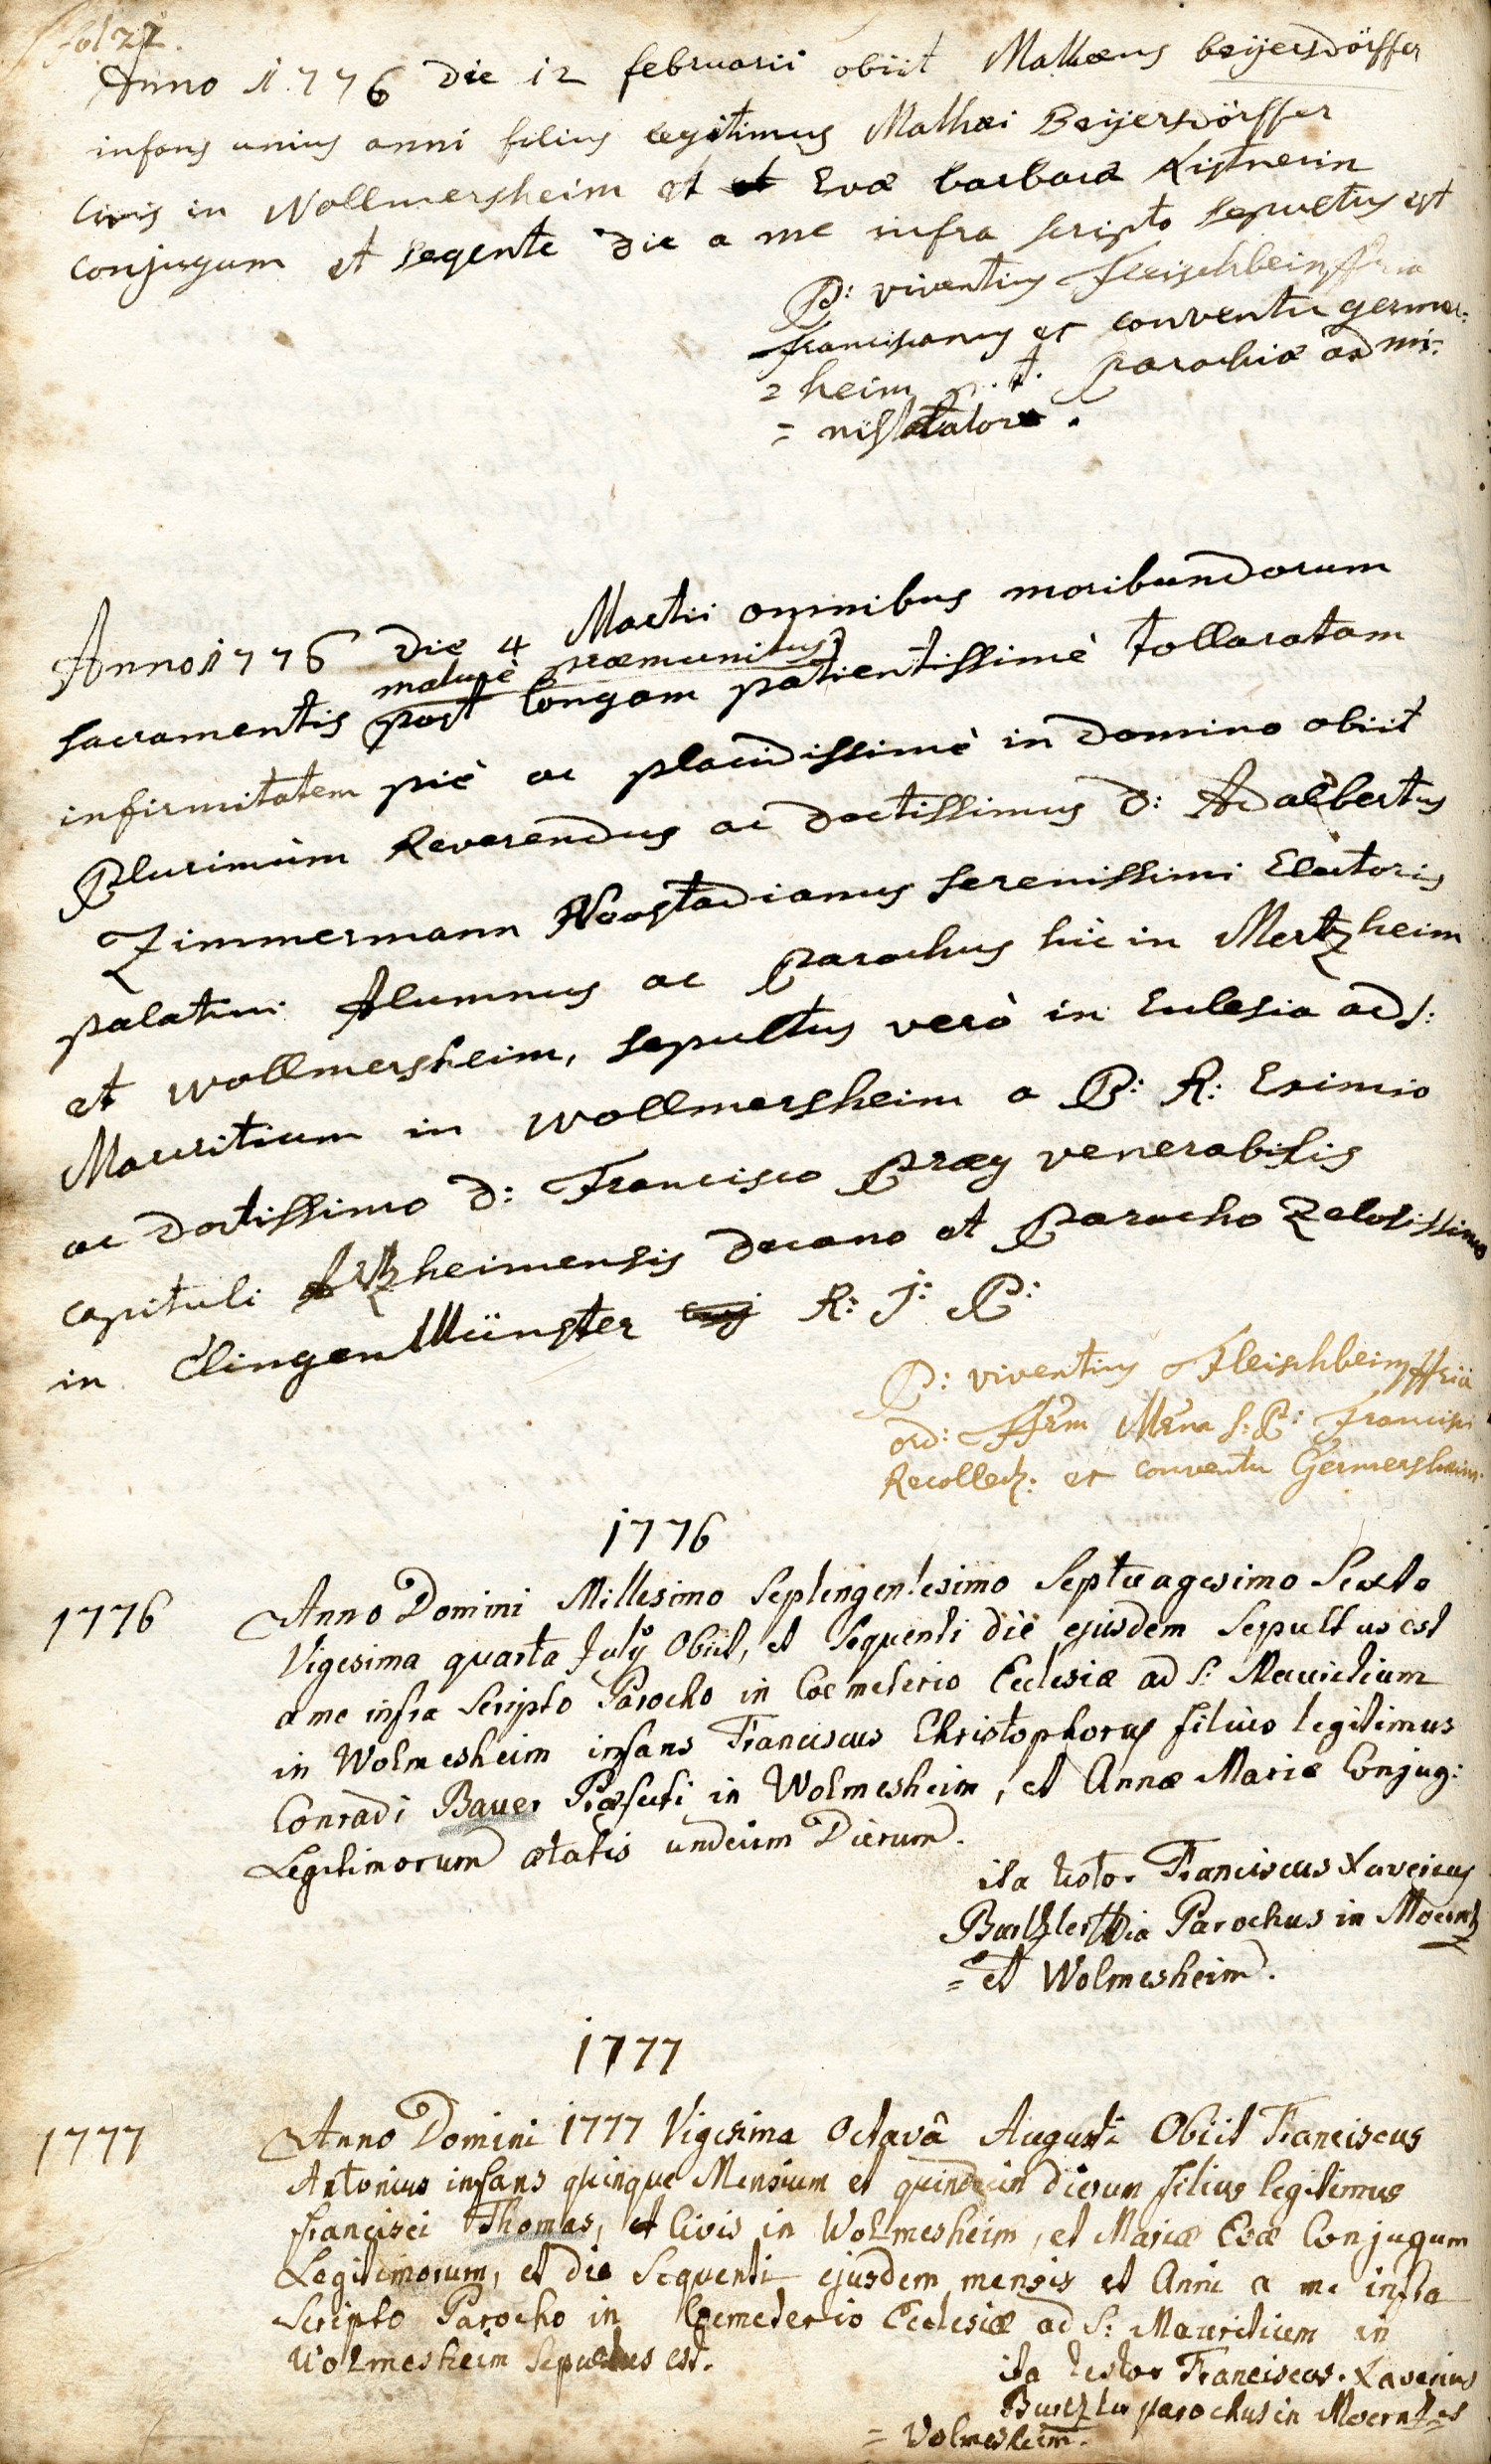 fol 22.
Anno 1776 die 12 februarii obiit Mathæus beijersdörffer
infans unius anni filius legitimus Mathæi Beijersdörffer
civis in Wollmersheim et et Evæ barbaræ Kistnerin
conjugum et seqente die a me infra scripto sepultus est
P: viventius Fleischbein
franciscanus ex conventu germer:
= heim p. t. parochiæ admi:
= nistratore.
Anno 1776 die 4 Martii omnibus moribundorum
maturè præmunitus
sacramentis post longam patientissimè tollaratam
infirmitatem piè ac placidissimè in domino obiit
Plurimùm Reverendus ac doctissimus d: Adalbertus
Zimmermann Neostadianus serenissimi Electoris
palatini Alumnus ac Parochus hic in Mertzheim
et wollmersheim, sepultus verò in Eclesia ad s:
Mauritium in wollmersheim a P: R: Eximio
ac doctissimo d: Francisco Præy venerabilis
capituli Artzheimensis decano et Parocho Zelosissimo
in ClingenMünster R: J: P:
P: viventius Fleischbein
ord: FFrm Mrnm S: P: Francisci
Recollect: ex conventu Germersheim.
1776
1776 Anno Domini Millesimo Septengentesimo Septuagesimo Sexto
Vigesima quarta July Obiit, et Sequenti die ejusdem Sepultus est
a me infra Scripto Parocho in Coemeterio Ecclesiæ ad S: Mauritium
in Wolmesheim infans Franciscus Christophorus filius legitimus
Conradi Bauer Præfecti in Wolmesheim, et Annæ Mariæ Conjug:
Legitimorum ætatis undecim Dierum.
ita testor Franciscus Xaverius
Parochus in Moerntz
= et Wolmesheim.
1777
1777 Anno Domini 1777 Vigesima Octavâ Augusti Obiit Franciscus
Antonius infans quinque Mensium et quindecin dierum filius legitimus
francisci Thomas, et Civis in Wolmesheim, et Mariæ Evæ Conjugum
Legitimorum, et die Sequenti ejusdem mensis et Anni a me infra
Scripto Parocho in Coemeterio Ecclesiæ ad S: Mauritium in
Wolmesheim Sepultus est.
ita testor Franciscus Xaverius
parochus in Moerntz et
= Volmesheim.